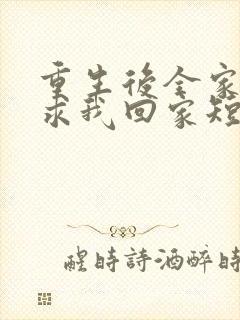 重生後全家
求我回家短
醒時詩酒醉時